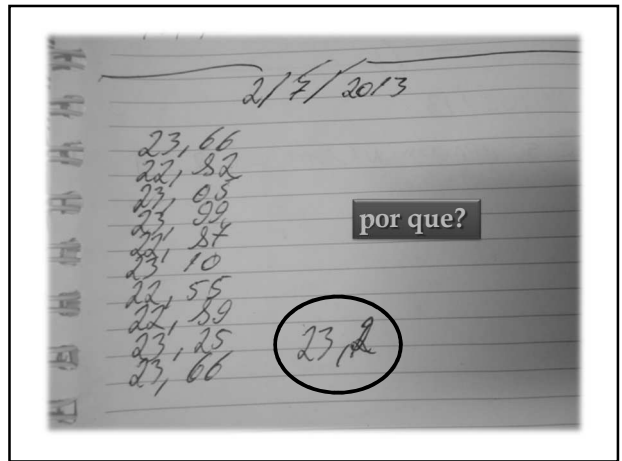 2/7/2013
23,66
22,82
23,05
23,99
22,87
23,10
22,55
22,89
23,25
23,66
por que?
23,2